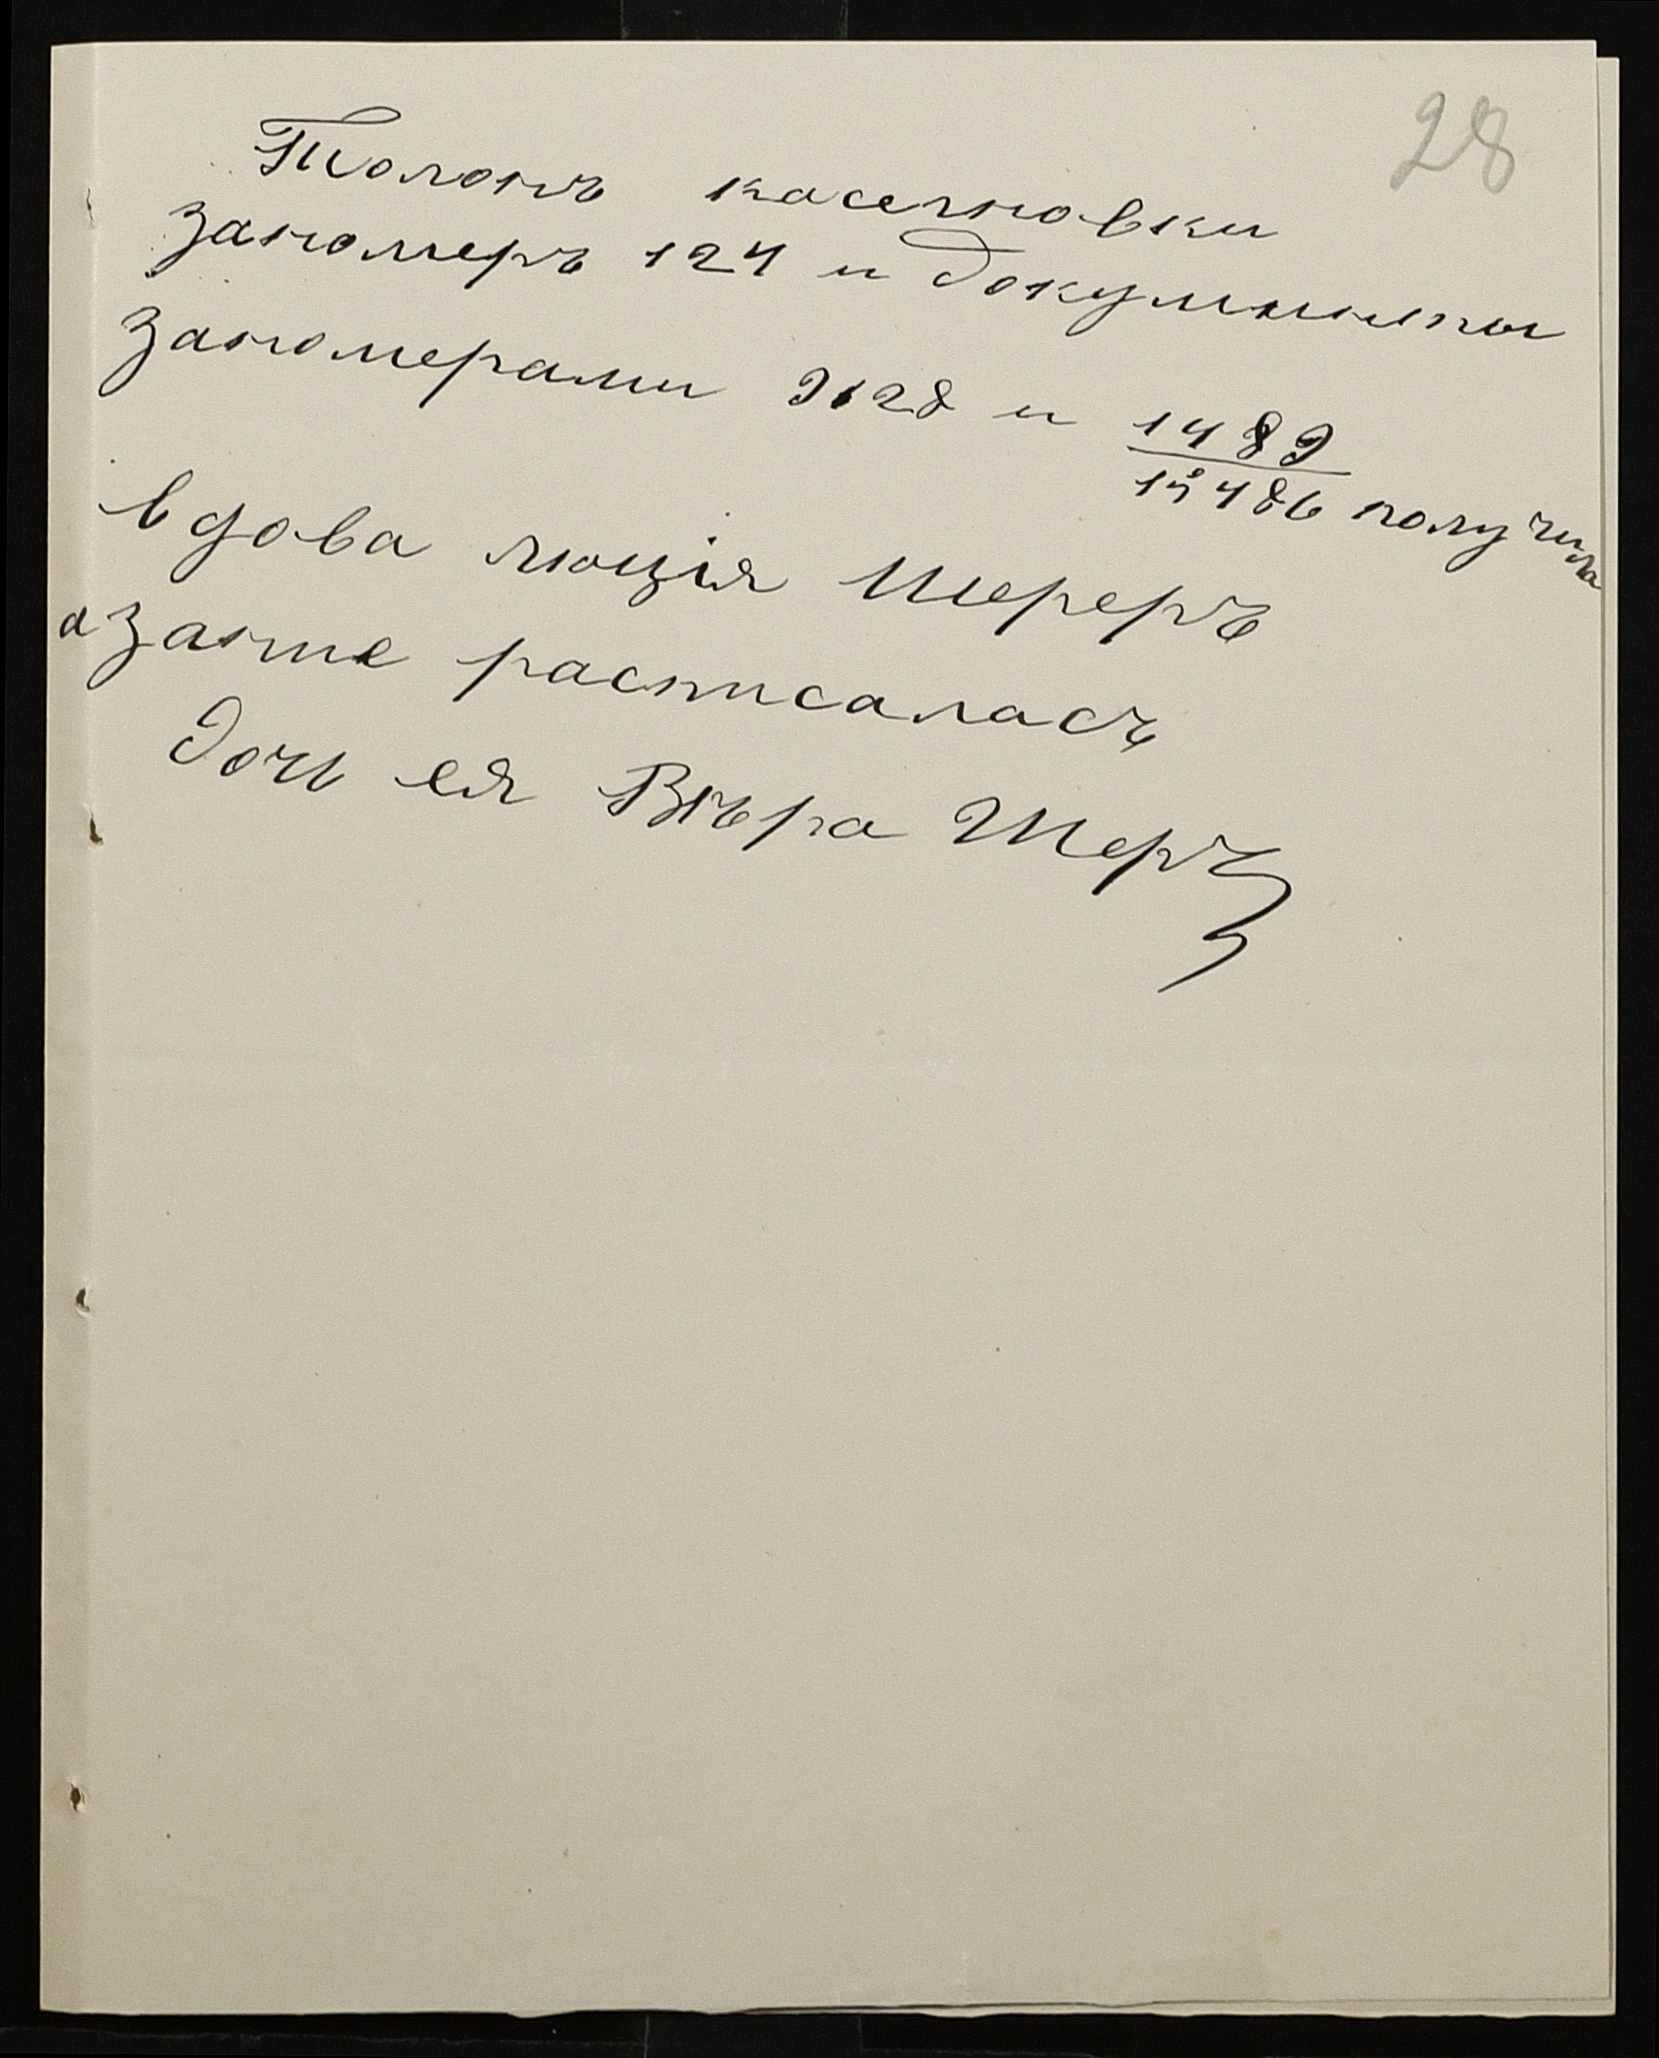 28
Толонъ касеновки
заномеръ 124 и документы
заномерами 9128 и 1489
12486 получила
вдова люція Шереръ
азанее расписаласъ
Дочь ея Вѣра Шеръ